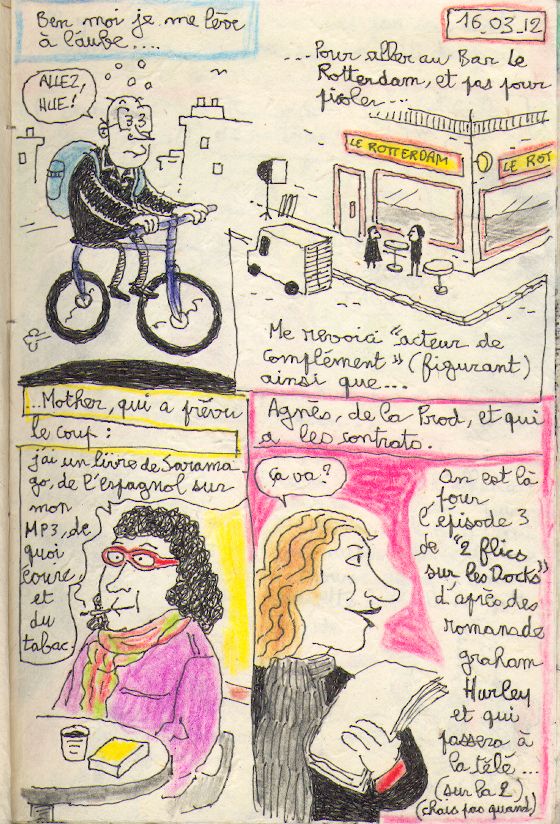 Ben moi je me lève
à l'aube....
ALLEZ,
HUE!
16_03_12
...Pour aller au Bar Le
Rotterdam, et pas pour
picoler...
LE ROTTERDAM
LE ROT
Me revoici "acteur de
complément" (figurant)
ainsi que...
...Mother, qui a prévu
le coup:
j'ai un livre de Sarama-
go, de l'espagnol sur
mon
MP3, de
quoi
écrire,
et
du
tabac
Agnès, de la Prod, et qui
a les contrats.
Ça va?
On est là
pour
l'épisode 3
de "2 flics
sur les Docks"
d'après des
romans de
graham
Hurley
et qui
passera à
la télé...
(sur la 2)
(chais pas quand)